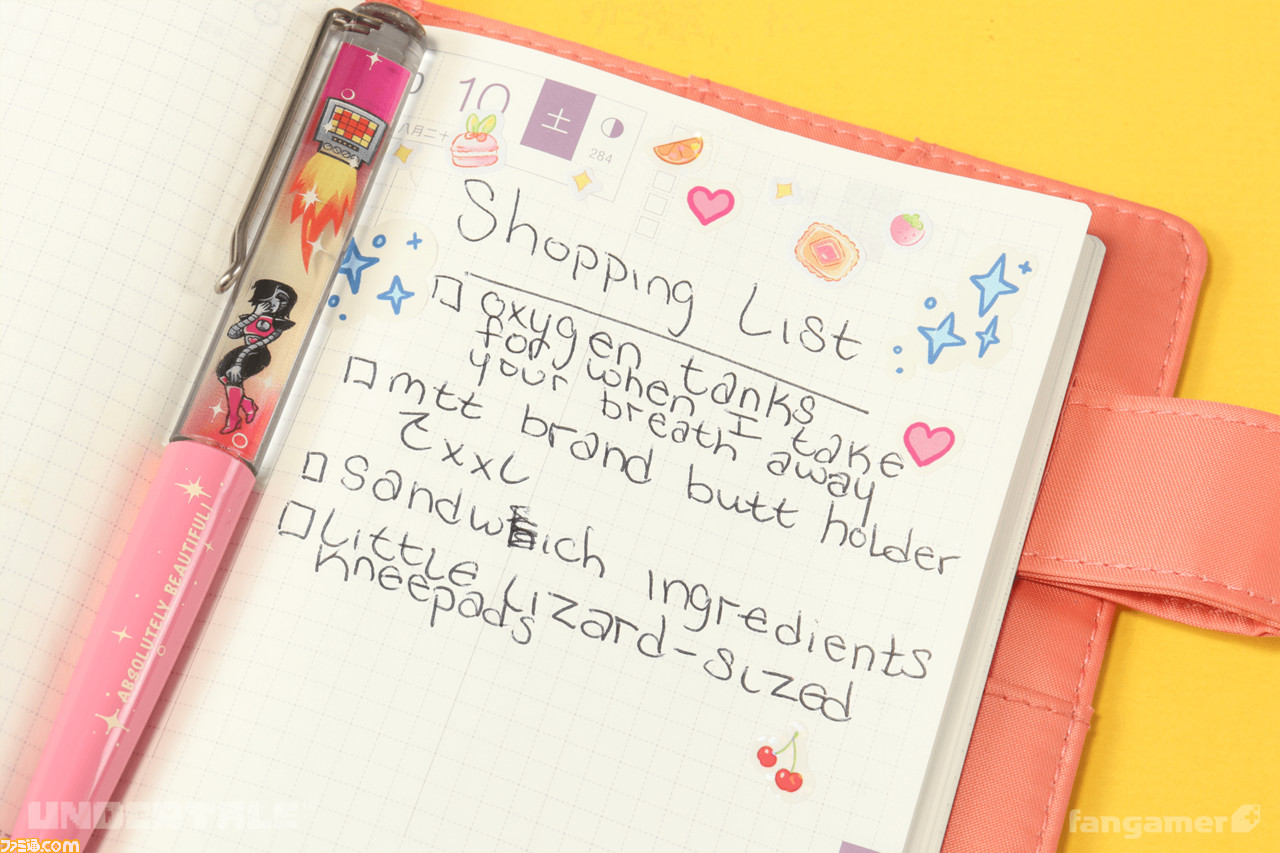 10
土
八月二十
284
Shopping List
oxygen tanks
for when I take
your breath away
mtt brand butt holder
Zxxl
Sandwich ingredients
Little Lizard-sized
kneepads
ABSOLUTELY BEAUTIFUL!
UNDERTALE
ファミ通.com
fangamer